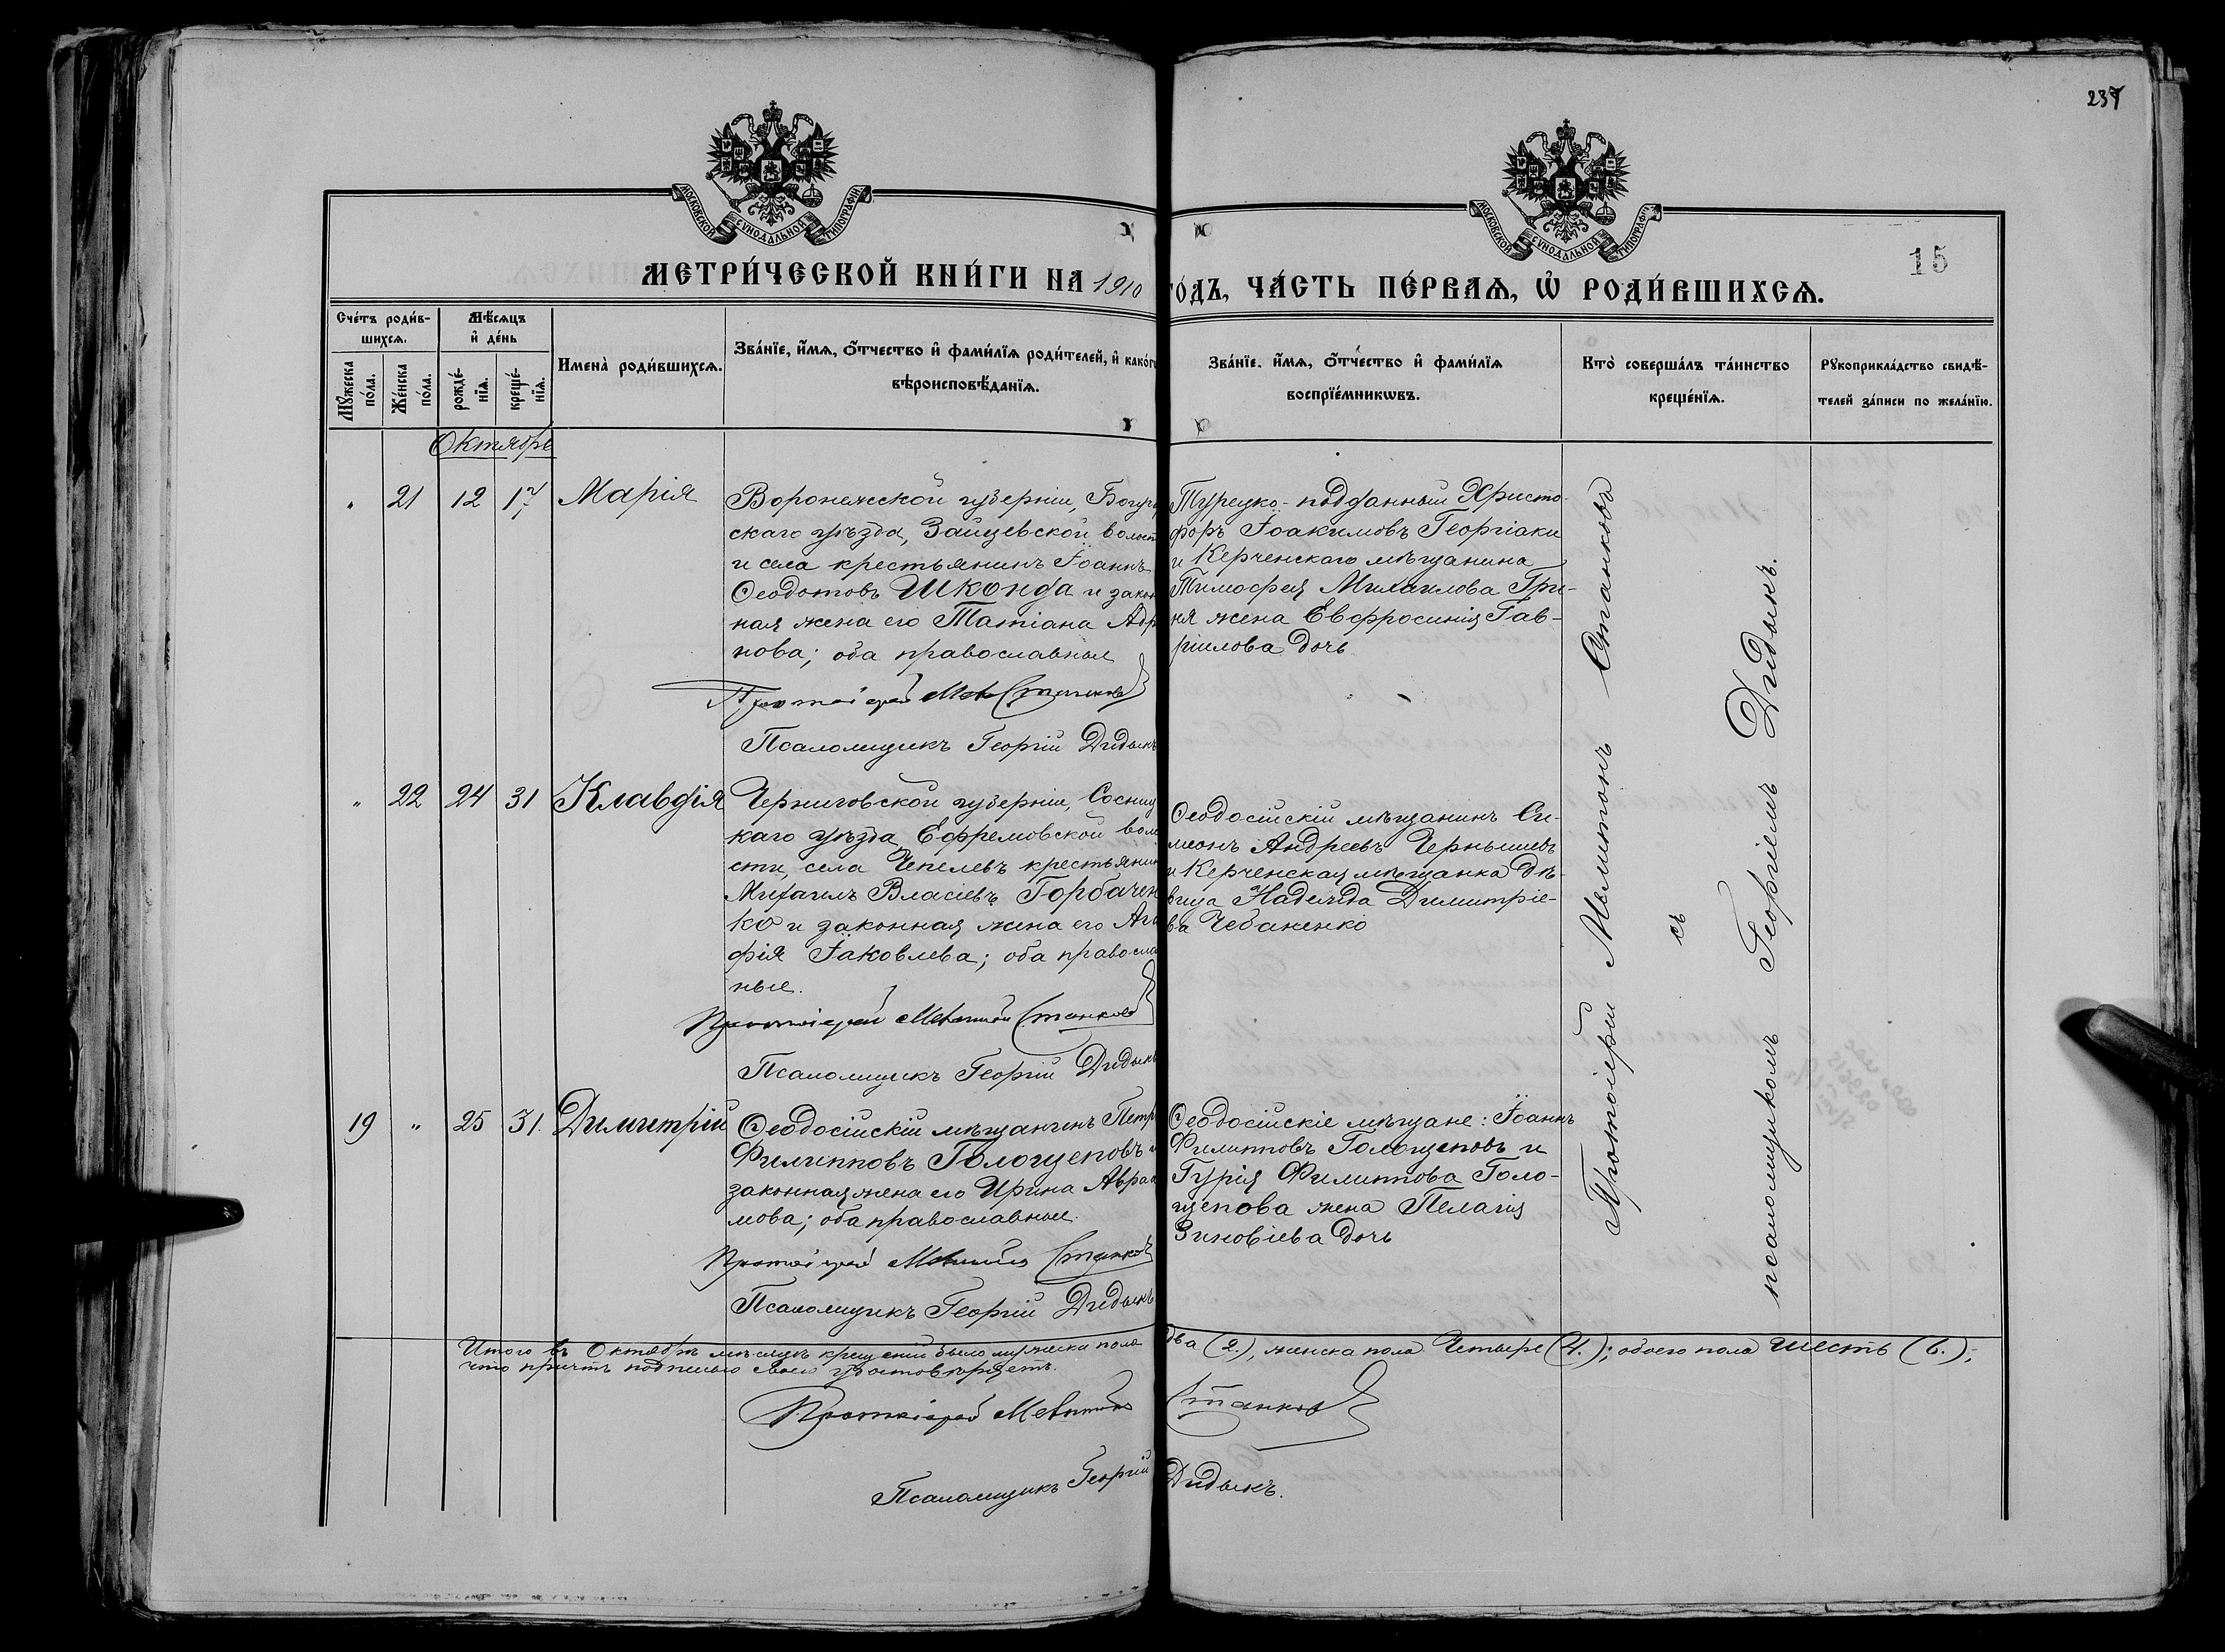 237
МОСКОВСКОЙ СѴНОДАЛЬНОЙ ТИПОГРАФІИ
МОСКОВСКОЙ СѴНОДАЛЬНОЙ ТИПОГРАФІИ
15
МЕТРИ́ЧЕСКОЙ КНИ́ГИ НА 1910
ГО́ДЪ, ЧА́СТЬ ПЕ́РВАѦ, Ѡ҆ РОДИ́ВШИХСѦ.
Сче́тъ роди́в-
шихсѧ.
Мꙋ́жеска
по́ла.
Же́нска
по́ла.
Мѣ́сѧцъ
и҆ де́нь
рожде́-
нїѧ.
креще́-
нїѧ.
Имена̀ роди́вшихсѧ.
Зва́нїе, и҆́мѧ, ѻ҆́тчество и҆ фами́лїѧ роди́телей, и҆ како́гѡ
вѣроисповѣ́данїѧ.
Зва́нїе. и҆́мѧ, ѻ҆́тчество и҆ фами́лїѧ
воспрїе́мникѡвъ.
Кто̀ соверша́лъ та́инство
креще́нїѧ.
Рꙋкоприкла́дство свидѣ́-
телей за́писи по жела́нїю.
Октябрь
„ 21 12 17 Марія
Воронежской губерніи, Богуч
скаго уѣзда, Зайцевской волост
и села крестьянинъ Іоаннъ
Ѳеодотовъ Шконда и закон
ная жена его Татіана Адр
нова; оба православные
Протоіерей Мел Станковъ
Псаломщикъ Георгій Дидыкъ
Турецко-подданный Христо-
форъ Іоакимовъ Георгіаки
и Керченскаго мѣщанина
Тимоѳея Михаилова Гри-
ня жена Евфросинія Гав-
ріилова дочь
„ 22 24 31 Клавдія
Черниговской губерніи, Сосниц
каго уѣзда, Ефремовской воло
сти, села Чепелевъ крестьянин
Михаилъ Власіевъ Горбачен
ко и законная жена его Ага
фія Іаковлева; оба правосла
ные.
Протоіерей Мелитонъ Станковъ
Псаломщикъ Георгій Дидыкъ
Ѳеодосійскій мѣщанинъ Си-
меонъ Андреевъ Чернышевъ
и Керченская мѣщанка дѣ-
вица Надежда Димитріе-
ва Чебаненко
19 „ 25 31. Димитрій
Ѳеодосійскій мѣщанинъ Петръ
Филипповъ Голощеповъ и
законная жена его Ирина Авраа
мова; оба православные.
Протоіерей Мелитонъ Станковъ
Псаломщикъ Георгій Дидыкъ
Ѳеодосійскіе мѣщане: Іоаннъ
Филипповъ Голощеповъ и
Гурія Филиппова Голо-
щепова жена Пелагія
Зиновіева дочь
Протоіерей Мелитонъ Станковъ
съ
псаломщикомъ Георгіемъ Дидыкъ.
Итого въ Октябрѣ мѣсяцѣ крещеній было мужеска пола два (2.), женска пола Четыре (4.); обоего пола шесть (6.);
что причтъ подписью своею удостовѣряетъ.
Протоіерей Мелитонъ Станковъ
Псаломщикъ Георгій Дидыкъ.